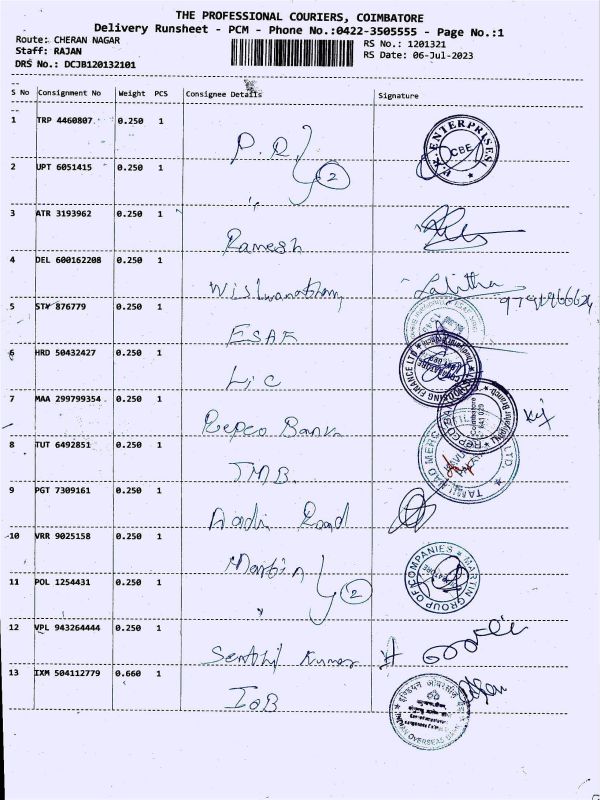 THE PROFESSIONAL COURIERS, COIMBATORE
Delivery Runsheet - PCM - Phone No.:0422-3505555 - Page No.:1
Route: CHERAN NAGAR
RS No.: 1201321
Staff: RAJAN
RS Date: 06-Jul-2023
DRS No.: DCJB120132101
S No Consignment No Weight PCS Consignee Details Signature
1 TRP 4460807 0.250 1 ENTERPRISES CBE
2 UPT 6051415 0.250 1 2
3 ATR 3193962 0.250 1 Ramesh
4 DEL 600162208 0.250 1 Lalitha
5 STW 876779 0.250 1 ESAF
6 HRD 50432427 0.250 1 LIC HOUSING FINANCE LTD
7 MAA 299799354 0.250 1 Repco Bank
8 TUT 6492851 0.250 1 TMB.
9 PGT 7309161 0.250 1 Road
10 VRR 9025158 0.250 1 Martin MARTIN GROUP OF COMPANIES
11 POL 1254431 0.250 1 2
12 VPL 943264444 0.250 1 Senthil Kumar
13 IXM 504112779 0.660 1 IOB INDIAN OVERSEAS BANK